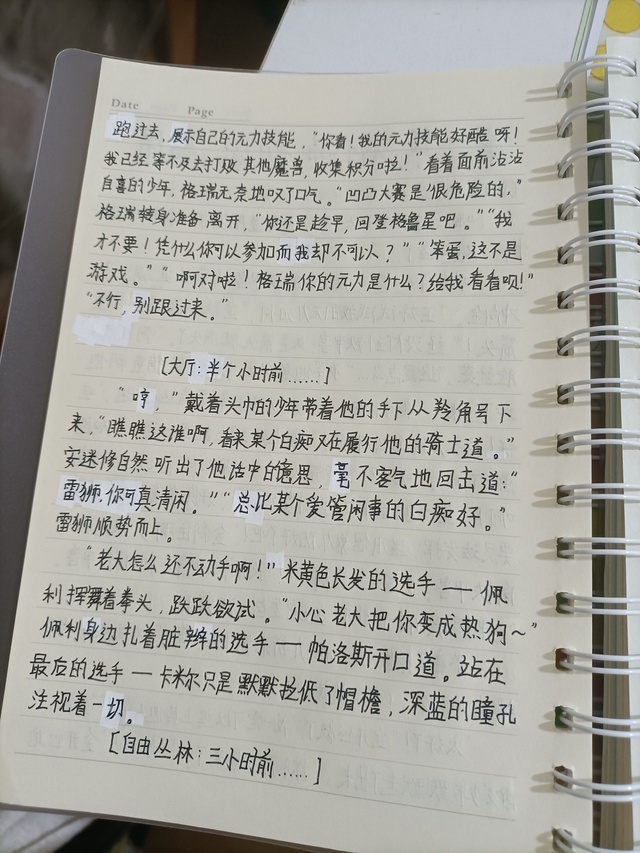 Date Page
跑过去，展示自己的元力技能，“你看！我的元力技能好酷呀！
我已经等不及去打败其他魔兽，收集积分啦！”看着面前沾沾
自喜的少年，格瑞无奈地叹了口气。“凹凸大赛是很危险的，”
格瑞转身准备离开，“你还是趁早，回登格鲁星吧。”“我
才不要！凭什么你可以参加而我却不可以？”“笨蛋，这不是
游戏。”“啊对啦！格瑞你的元力是什么？给我看看呗！”
“不行，别跟过来。”
[大厅：半个小时前……]
“哼，”戴着头巾的少年带着他的手下从羚角号下
来，“瞧瞧这谁啊，看来某个白痴又在履行他的骑士道。”
安迷修自然听出了他话中的意思，毫不客气地回击道：“
雷狮，你可真清闲。”“总比某个爱管闲事的白痴好。”
雷狮顺势而上。
“老大怎么还不动手啊！”米黄色长发的选手——佩
利挥舞着拳头，跃跃欲试。“小心老大把你变成热狗~”
佩利身边扎着脏辫的选手——帕洛斯开口道。站在
最后的选手——卡米尔只是默默拉低了帽檐，深蓝的瞳孔
注视着一切。
[自由丛林：三小时前……]